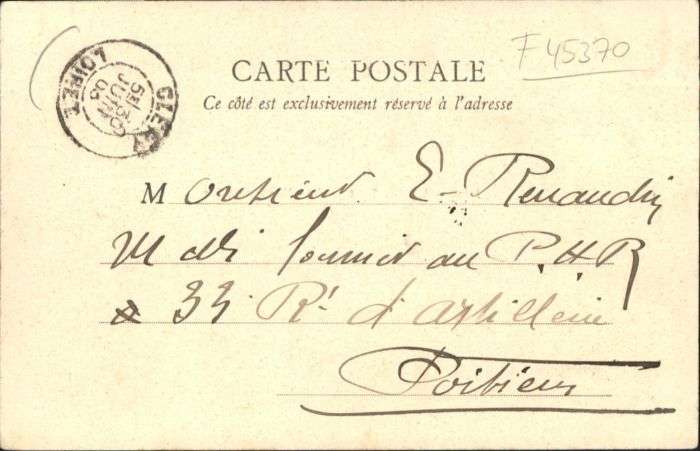 F 45370
CARTE POSTALE
Ce côté est exclusivement réservé à l'adresse
CLERY
5E 30
JUIN
03
LOIRET
Monsieur E. Renaudin
M fourrier au P.H.R
33 Rt d'artillerie
Poitiers